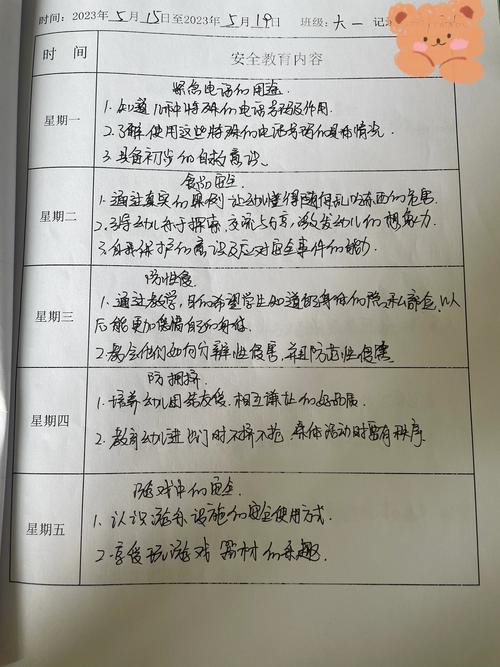 时间:2023年5月15日至2023年5月19日 班级:大一 记录
时 间 安全教育内容
星期一
紧急电话的用途.
1.知道几种特殊的电话号码及作用.
2.了解使用这些特殊的电话号码的具体情况.
3.具备初步的自救意识.
星期二
食品安全.
1.通过真实的案例让幼儿懂得随便乱吃东西的危害.
2.引导幼儿乐于探索,交流与分享,激发幼儿的想象力
3.自我保护的意识及应对安全事件的能力.
星期三
防性侵
1.通过教学,目的希望学生知道自己身体的隐私部位,以
后能更加保护自己的身体.
2.教会他们如何分辨性侵害,并且防范性侵害
星期四
防拥挤
1.培养幼儿团结友爱.相互谦让的好品质.
2.教育幼儿进出门时不挤不抢,集体活动时要有秩序.
星期五
游戏中的安全
1.认识游乐设施的安全使用方式.
2.享受玩游戏 器材的乐趣.